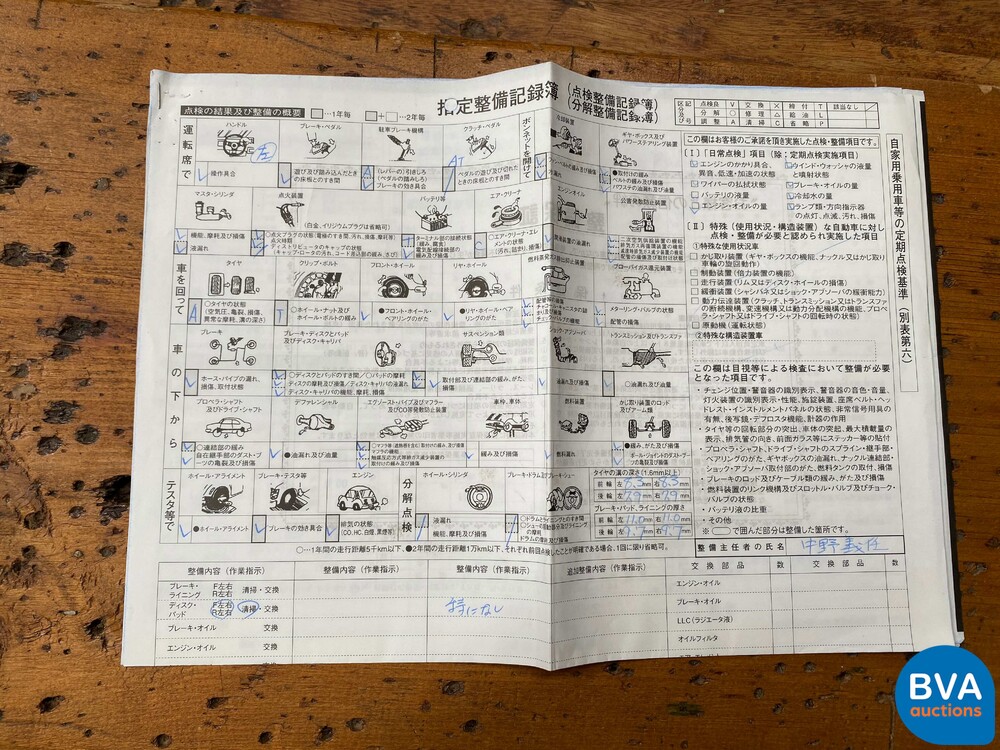 指定整備記録簿
(点検整備記録簿)
(分解整備記録簿)
点検の結果及び整備の概要
…1年毎
…2年毎
点検良 V 交換 × 締付 T 該当なし
分解 ○ 修理 △ 給油 L
調整 A 清掃 C 省略 P
運転席で
ハンドル
ブレーキ・ペダル
駐車ブレーキ機構
クラッチ・ペダル
左
AT
操作具合
遊び及び踏み込んだときの床板とのすき間
(レバーの)引きしろ
(ペダルの踏みしろ)
ブレーキの効き具合
ペダルの遊び及び切れたときの床板とのすき間
ボンネットを開けて
ギヤ・ボックス及び
パワーステアリング装置
●取付の緩み
ベルトの緩み及び損傷
パワステの油漏れ及び油量
マスタ・シリンダ
点火装置
(白金、イリジウムプラグは省略可)
バッテリ等
エア・クリーナ
エンジン・オイル
公害発散防止装置
機能、摩耗及び損傷
液漏れ
○点火プラグの状態
点火時期
ディストリビュータのキャップの状態
ターミナル部の接続状態
(緩み、腐食)
電気配線接続部の
緩み及び損傷
○エア・クリーナ・エレメントの状態
(汚れ、詰まり、損傷)
車を回って
タイヤ
クリップ・ボルト
フロント・ホイール
リヤ・ホイール
ブローバイガス還元装置
○タイヤの状態
(空気圧、亀裂、損傷、
異常な摩耗、溝の深さ)
○ホイール・ナット及び
ホイール・ボルトの緩み
●フロント・ホイール・
ベアリングのがた
●リヤ・ホイール・ベアリングのがた
メターリング・バルブの状態
配管の損傷
車の下から
ブレーキ
ブレーキ・ディスクとパッド
及びディスク・キャリパ
サスペンション類
ショック・アブソーバ
トランスミッション及びトランスファ
ホース・パイプの漏れ、
損傷、取付状態
○ディスクとパッドのすき間/○パッドの摩耗
ディスクの摩耗及び損傷/ディスク・キャリパの液漏れ
ディスク・キャリパの機能、摩耗、損傷
取付部及び連結部の緩み、がた、
損傷
油漏れ及び損傷
○油漏れ及び油量
プロペラ・シャフト
及びドライブ・シャフト
デファレンシャル
エグゾースト・パイプ及びマフラー
及びCO等発散防止装置
車枠、車体
燃料装置
かじ取り装置のロッド
及びアーム類
○連結部の緩み
自在継手部のダスト・ブーツの亀裂及び損傷
●油漏れ及び油量
緩み及び損傷
燃料漏れ
●緩み、がた及び損傷
ボール・ジョイントのダスト・ブーツの亀裂及び損傷
テスタ等で
ホイール・アライメント
ブレーキ・テスタ等
エンジン
分解点検
ホイール・シリンダ
ブレーキ・ドラム及びブレーキ・シュー
●ホイール・アライメント
ブレーキの効き具合
排気の状態
(CO、HC、白煙、黒煙等)
液漏れ
機能、摩耗及び損傷
タイヤの溝の深さ(1.6mm以上)
前輪 左6.3mm 右6.3mm
後輪 左7.9mm 右7.9mm
ブレーキ・パッド、ライニングの厚さ
前輪 左11.0mm 右11.0mm
後輪 左9.7mm 右9.7mm
○…1年間の走行距離5千km以下、●2年間の走行距離1万km以下、それぞれ前回点検したことが明確である場合、1回に限り省略可。
自家用乗用車等の定期点検基準(別表第六)
この欄はお客様のご承諾を頂き実施した点検・整備項目です。
〔Ⅰ〕「日常点検」項目(除:定期点検実施項目)
エンジンのかかり具合、
異音、低速・加速の状態
ウインド・ウォッシャの液量
と噴射状態
ワイパーの払拭状態
ブレーキ・オイルの量
バッテリの液量
冷却水の量
エンジン・オイルの量
ランプ類・方向指示器
の点灯、点滅、汚れ、損傷
〔Ⅱ〕特殊(使用状況・構造装置)な自動車に対し
点検・整備が必要と認められ実施した項目
①特殊な使用状況車
かじ取り装置(ギヤ・ボックスの機能、ナックル又はかじ取り
車輪の旋回動作)
制動装置(倍力装置の機能)
走行装置(リム又はディスク・ホイールの損傷)
緩衝装置(シャシバネ又はショック・アブソーバの緩衝能力)
動力伝達装置(クラッチ、トランスミッション又はトランスファ
の操作機構、変速機構又は動力分配機構の機能、プロペ
ラ・シャフト又はドライブ・シャフトの回転時の状態)
原動機(運転状態)
②特殊な構造装置車
この欄は目視等による検査において整備が必要
となった項目です。
・チェンジ位置・警音器の識別表示、警音器の音色・音量、
灯火装置の識別表示・性能、施錠装置、座席ベルト・ヘッ
ドレスト・インストルメントパネルの状態、非常信号用具の
有無、後写鏡・デフロスタ機能、計器の作用
・タイヤ等の回転部分の突出、車体の突起、最大積載量の
表示、排気管の向き、前面ガラス等にステッカー等の貼付
・プロペラ・シャフト、ドライブ・シャフトのスプライン・継手部・
ベアリングのがた、ギヤボックスの油漏れ、ナックル連結部・
ショック・アブソーバ取付部のがた、燃料タンクの取付、損傷
・ブレーキのロッド及びケーブル類の緩み、がた及び損傷
・燃料装置のリンク機構及びスロットル・バルブ及びチョーク・
バルブの状態
・バッテリ液の比重
・その他
※○で囲んだ部分は整備した箇所です。
整備主任者の氏名
整備内容(作業指示) 整備内容(作業指示) 整備内容(作業指示) 追加整備内容(作業指示) 交換部品 数 交換部品 数
ブレーキ・ライニング F左右 R左右 清掃・交換
ディスク・パッド F左右 R左右 清掃・交換
特になし
ブレーキ・オイル 交換
エンジン・オイル 交換
エンジン・オイル
ブレーキ・オイル
LLC(ラジエータ液)
オイルフィルタ
BVA
auctions